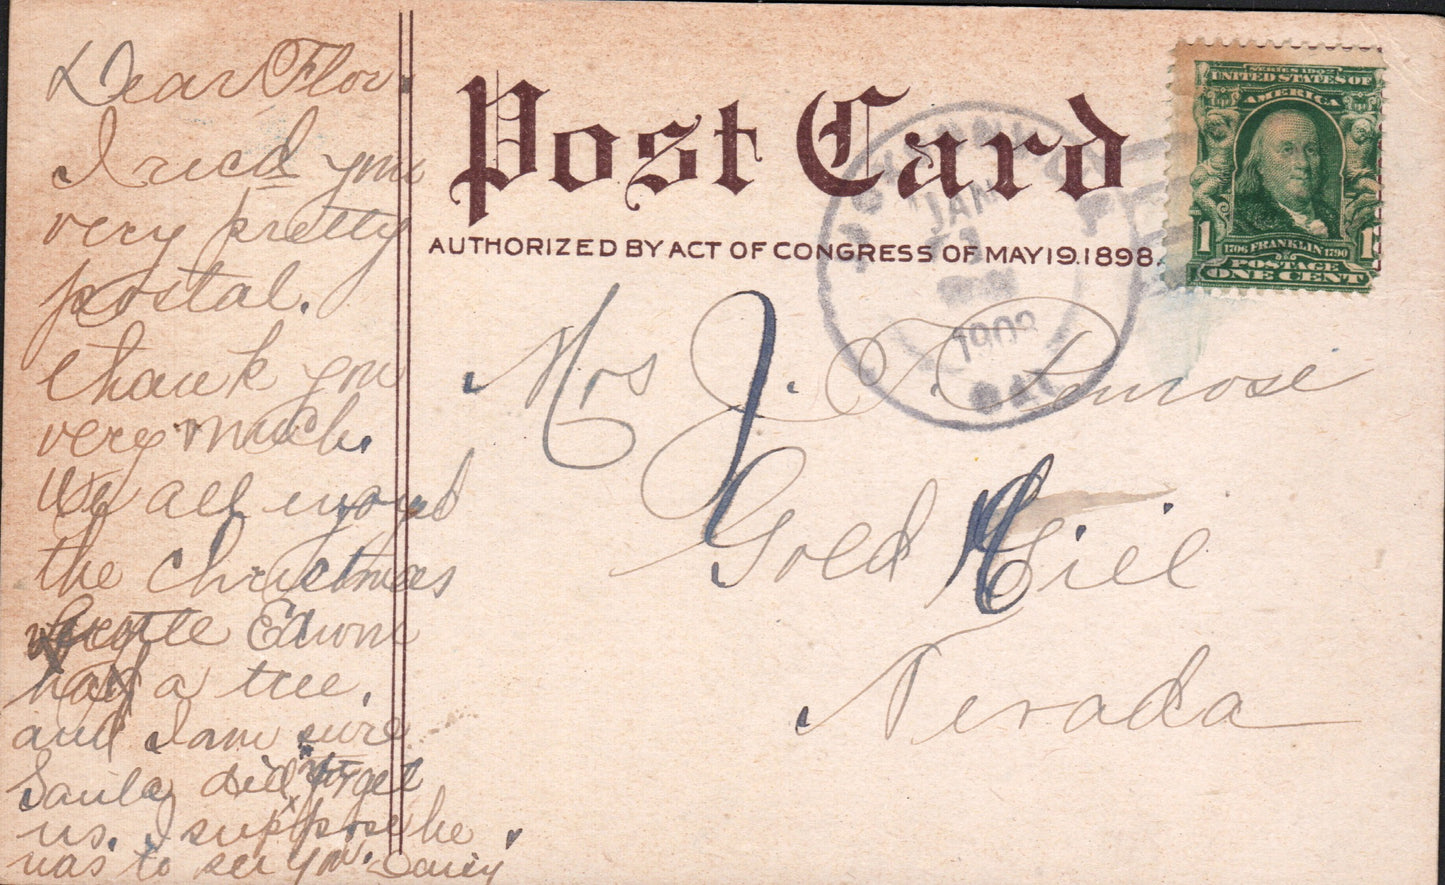 Dear Flor.
I recd your
very pretty
postal.
thank you
very much.
We all enjoyed
the Christmas
Edwin
had a tree.
and I am sure
Santa did not forget
us. I suppose he
was to see you.
Post Card
AUTHORIZED BY ACT OF CONGRESS OF MAY 19.1898.
JAN
190
CAL
SERIES 1902
UNITED STATES OF
AMERICA
1 1706 FRANKLIN 1790 1
POSTAGE
ONE CENT
Mrs J. T.
Gold Hill
Nevada